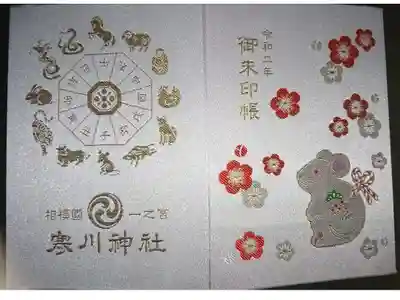 令和二年
御朱印帳
相模國 一之宮
寒川神社